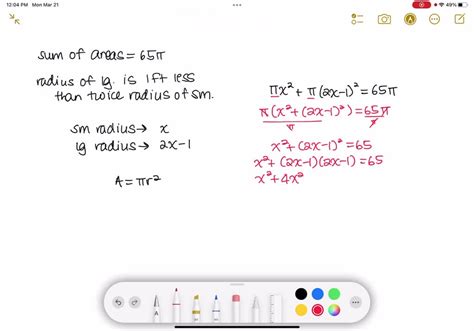 12:04 PM Mon Mar 21
49%
sum of areas = 65π
radius of lg. is 1ft less
than twice radius of sm.
sm radius → x
lg radius → 2x-1
A = πr²
πx² + π(2x-1)² = 65π
π(x² + (2x-1)²) = 65π
π π
x² + (2x-1)² = 65
x² + (2x-1)(2x-1) = 65
x² + 4x²